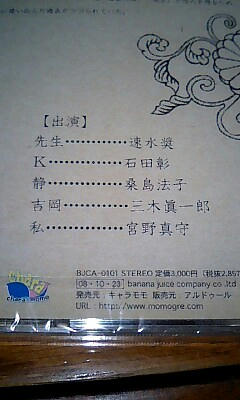 【出演】
先生…………速水奨
K……………石田彰
静……………桑島法子
吉岡…………三木眞一郎
私……………宮野真守
BJCA-0101 STEREO 定価3,000円（税抜2,857
08・10・23 banana juice company co ltd
発売元：キャラモモ 販売元：アルドゥール
URL：https://www.momogre.com